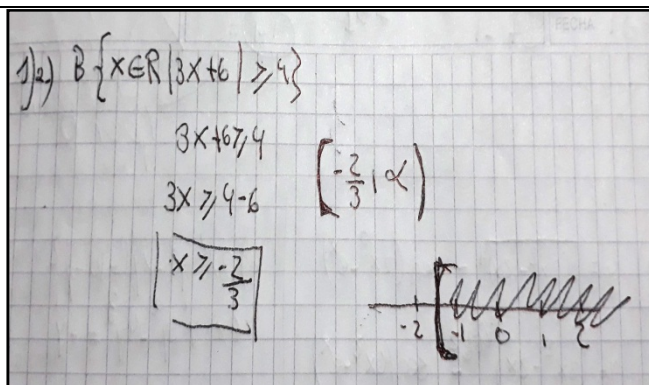 FECHA
1)a) B {x∈R |3x+6| ⩾ 4}
3x+6⩾4
3x ⩾ 4-6
x ⩾ -2/3
(-2/3, ∝)
-2 -1 0 1 2